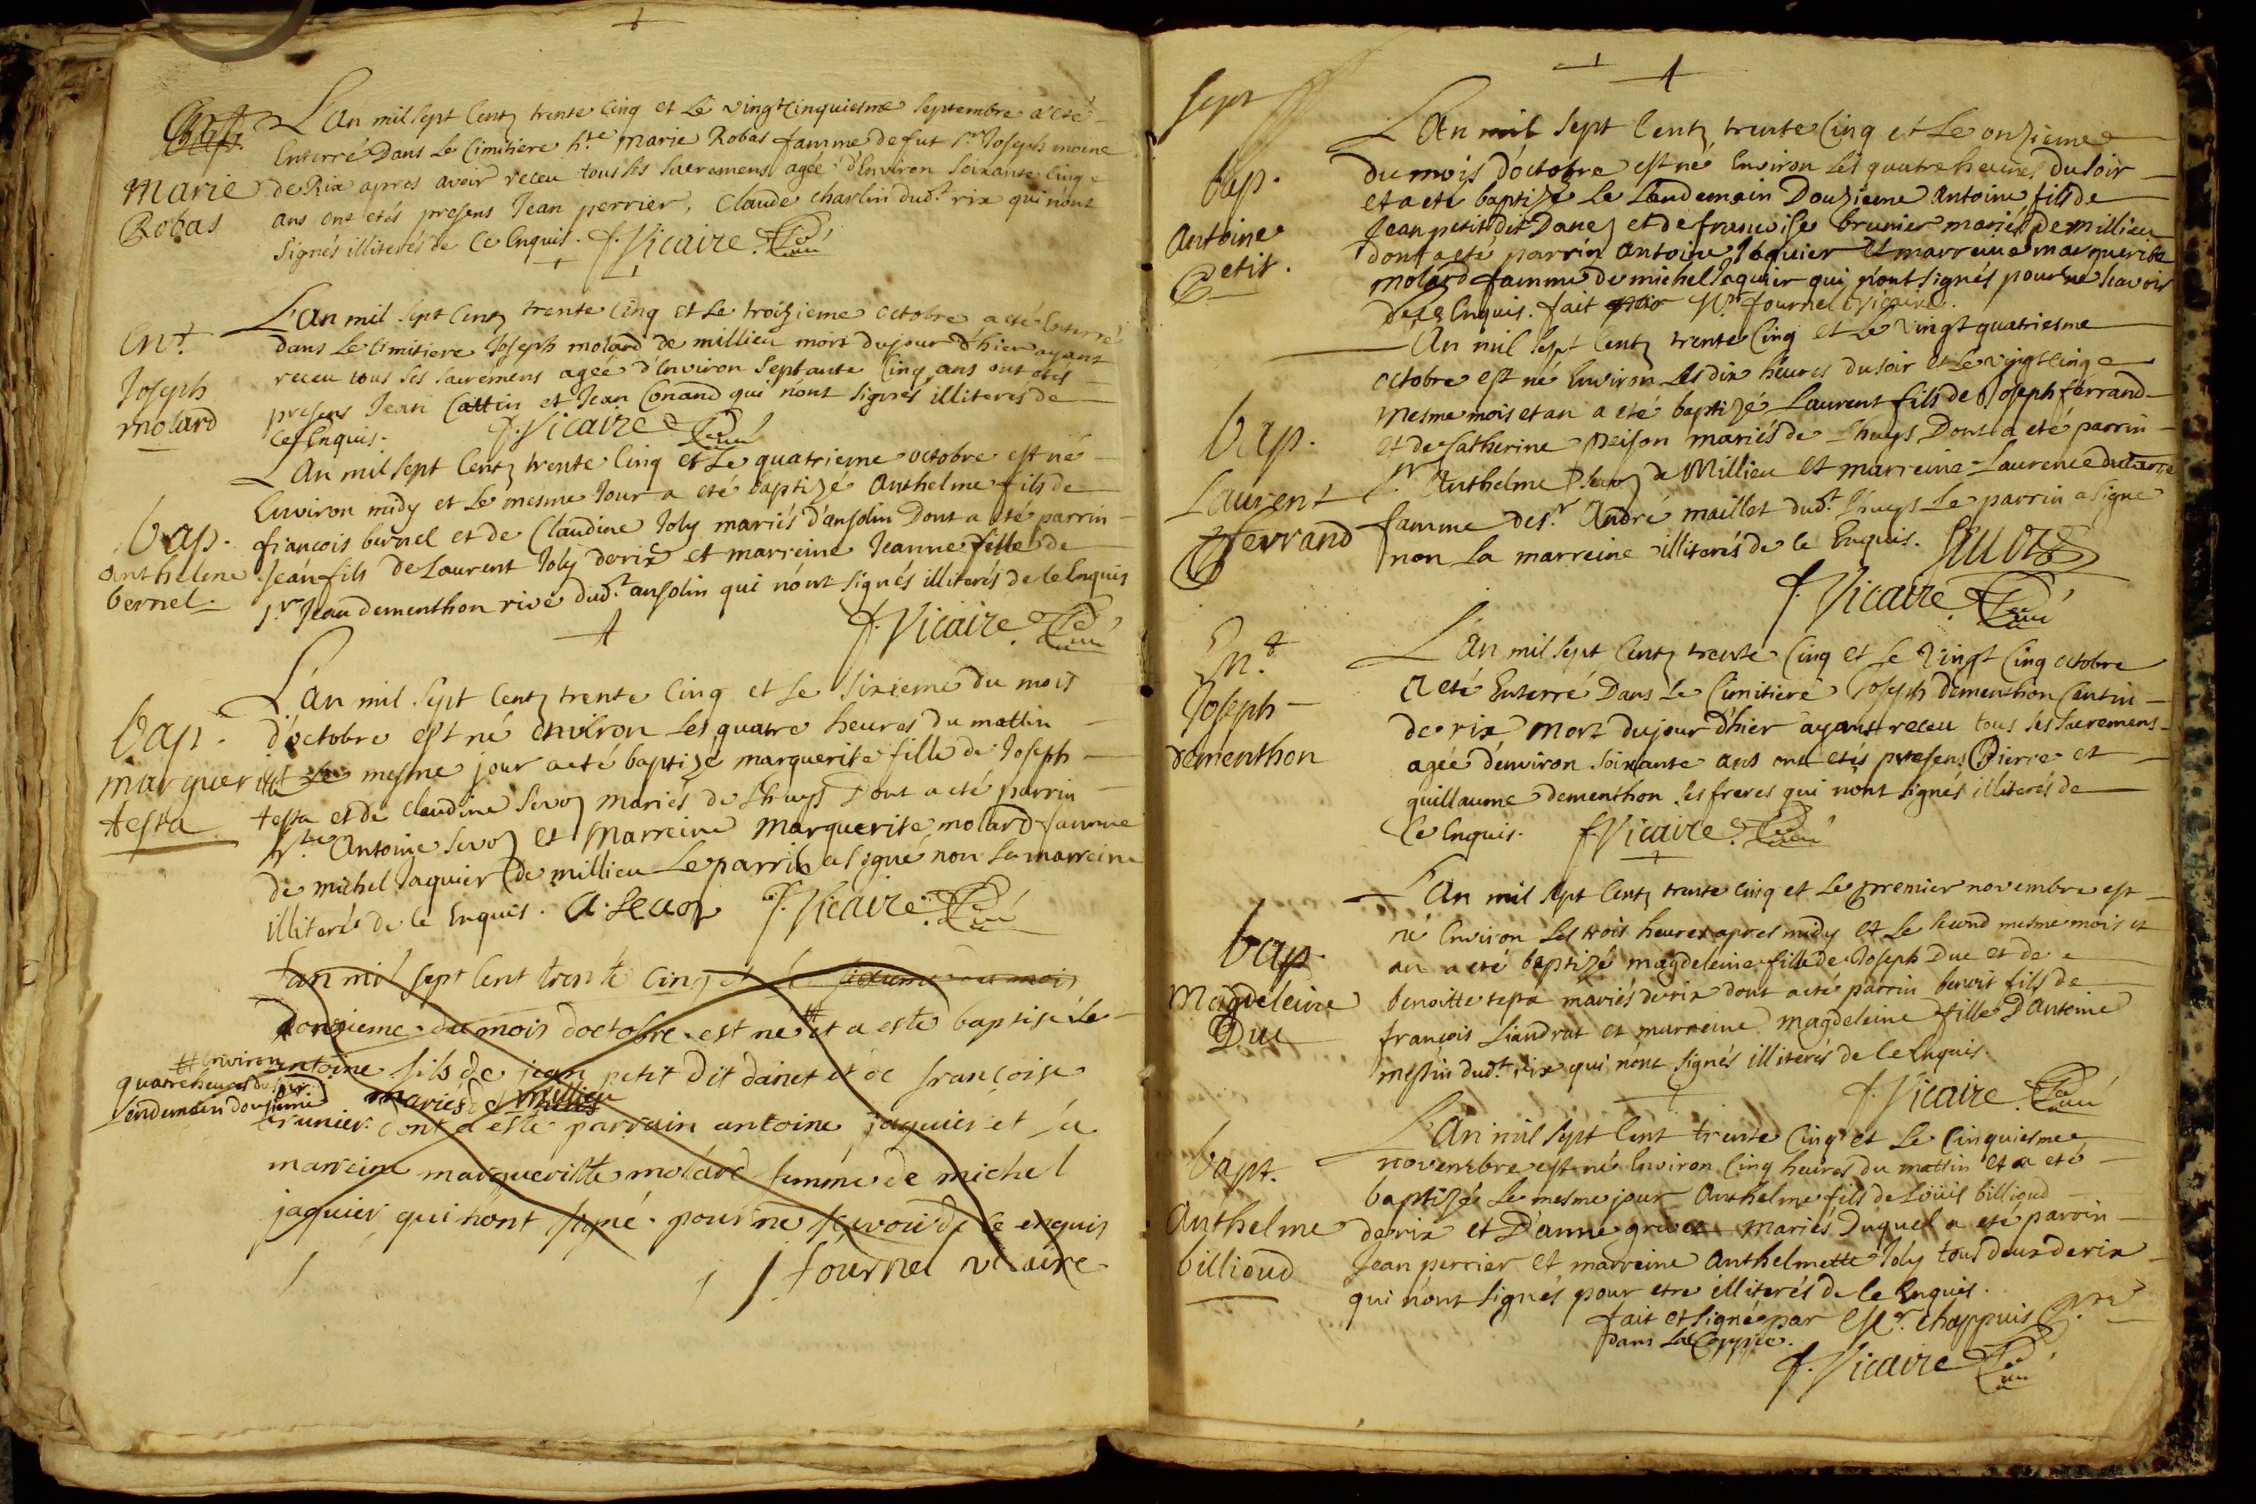 L'an mil sept centz trente cinq et le vingtcinquiesme septembre a eté
Enterré dans le cimitiere h.te marie Robas famme de fut s.r Joseph moene
Marie
Robas
de Rix apres avoir receu tous ses sacremens agée d'Environ soixante cinq
ans ont etés presens Jean perrier, Claude charlin dud.t rix qui n'ont
signés illiterés de ce Enquis. f. Vicaire Curé
Ent.
Joseph
molard
L'an mil sept centz trente cinq et le troizieme octobre a eté Enterré
dans le cimitiere Joseph molard de millieu mort du jour d'hier ayant
receu tous ses sacremens ageé d'Environ septante cinq ans ont etés
presens Jean Cattin et Jean Conand qui n'ont signés illiterés de
ce Enquis. f. Vicaire Curé
bap.
anthelme
bernel.
L'An mil sept centz trente cinq et le quatrieme octobre est né
Environ midy et le mesme Jour a eté baptizé Anthelme fils de
françois bernel et de Claudine Joly mariés d'ansolin Dont a eté parrin
Jean fils de Laurent Joly de rix et marreine Jeanne fille de
s.r Jean dementhon rive dud.t ansolin qui n'ont signés illiterés de ce Enquis
f. Vicaire Curé
bap.
marguerite
testa
L'an mil sept centz trente cinq et le sixieme du mois
d'octobre est né environ les quatre heures du mattin
et le mesme jour a eté baptizé marguerite fille de Joseph
testa et de claudine sevoz mariés de Lhuys Dont a eté parrin
Antoine sevoz et Marreine Marguerite molard famme
de michel Jaquier de millieu Le parrin a signé non la marreine
illiteré de ce Enquis. A. Sevoz f. Vicaire Curé
L'an mil sept cent trente cinq et le sixieme du mois
onzieme du mois doctobre est ne # et a este baptisé le
# Environ
quatre heures du soir
lendemain douzieme
antoine fils de jean petit dit danet et de françoise
mariés de millieu
brunier dont a este parrain antoine jaquier et sa
marreine margueritte molard femme de michel
jaquier qui nont signé pour ne sçavoir de ce enquis
fournel vicaire
sept
bap.
antoine
Petit.
L'An mil sept centz trente cinq et le onzieme
du mois d'octobre est né Environ les quatre heures du soir
et a eté baptizé le Lendemain Douzieme Antoine fils de
Jean petit dit Danez et de françoise brunier mariés de millieu
dont a eté parrin Antoine Jaquier et marreine marguerite
molard famme de michel Jaquier qui n'ont signés pour ne scavoir
de ce Enquis. fait M.r fournel Vicaire.
bap.
Laurent
ferrand
An mil sept centz trente cinq et le Vingt quatriesme
octobre est né Environ les dix heures du soir et le vingtcinq
mesme mois et an a eté baptizé Laurent fils de Joseph ferrand
et de Catherine Peison mariés de Lhuys Dont a eté parrin
s.r Anthelme sevoz de Millieu et marreine Laurence
famme de s.r André maillet dud.t Lhuys Le parrin a signé
non la marreine illiterés de ce Enquis. Sevoz
f. Vicaire Curé
Ent.
Joseph
dementhon
L'an mil sept centz trente cinq et le Vingt cinq octobre
a eté Enterré Dans le Cimitiere Joseph dementhon Cantin
de rix mort du jour d'hier ayant receu tous ses sacremens
ageé d'environ soixante ans ont etés presens Pierre et
guillaume dementhon ses freres qui n'ont signés illiterés de
Ce Enquis. f. Vicaire Curé
bap.
Magdeleine
Duc
L'An mil sept centz trente cinq et le premier novembre est
né Environ les trois heures apres midy et le second mesme mois et
an a eté baptizé magdeleine fille de Joseph Duc et de
benoitte testa mariés de rix dont a eté parrin benoit fils de
françois Liandrat et marreine magdeleine fille D'Antoine
messin dud.t rix qui n'ont signés illiterés de ce Enquis
f. Vicaire Curé
bapt.
Anthelme
billioud
L'An mil sept cent trente cinq et le Cinquiesme
novembre est né Environ cinq heures du mattin et a eté
baptizée le mesme jour Anthelme fils de Loüis billioud
de rix et D'anne mariés Duquel a eté parrin
Jean perrier et marreine Anthelmette Joly tous deux de rix
qui n'ont signés pour etre illiterés de ce Enquis.
fait et signé par chappuis
Dans La Coppie.
f. Vicaire Curé